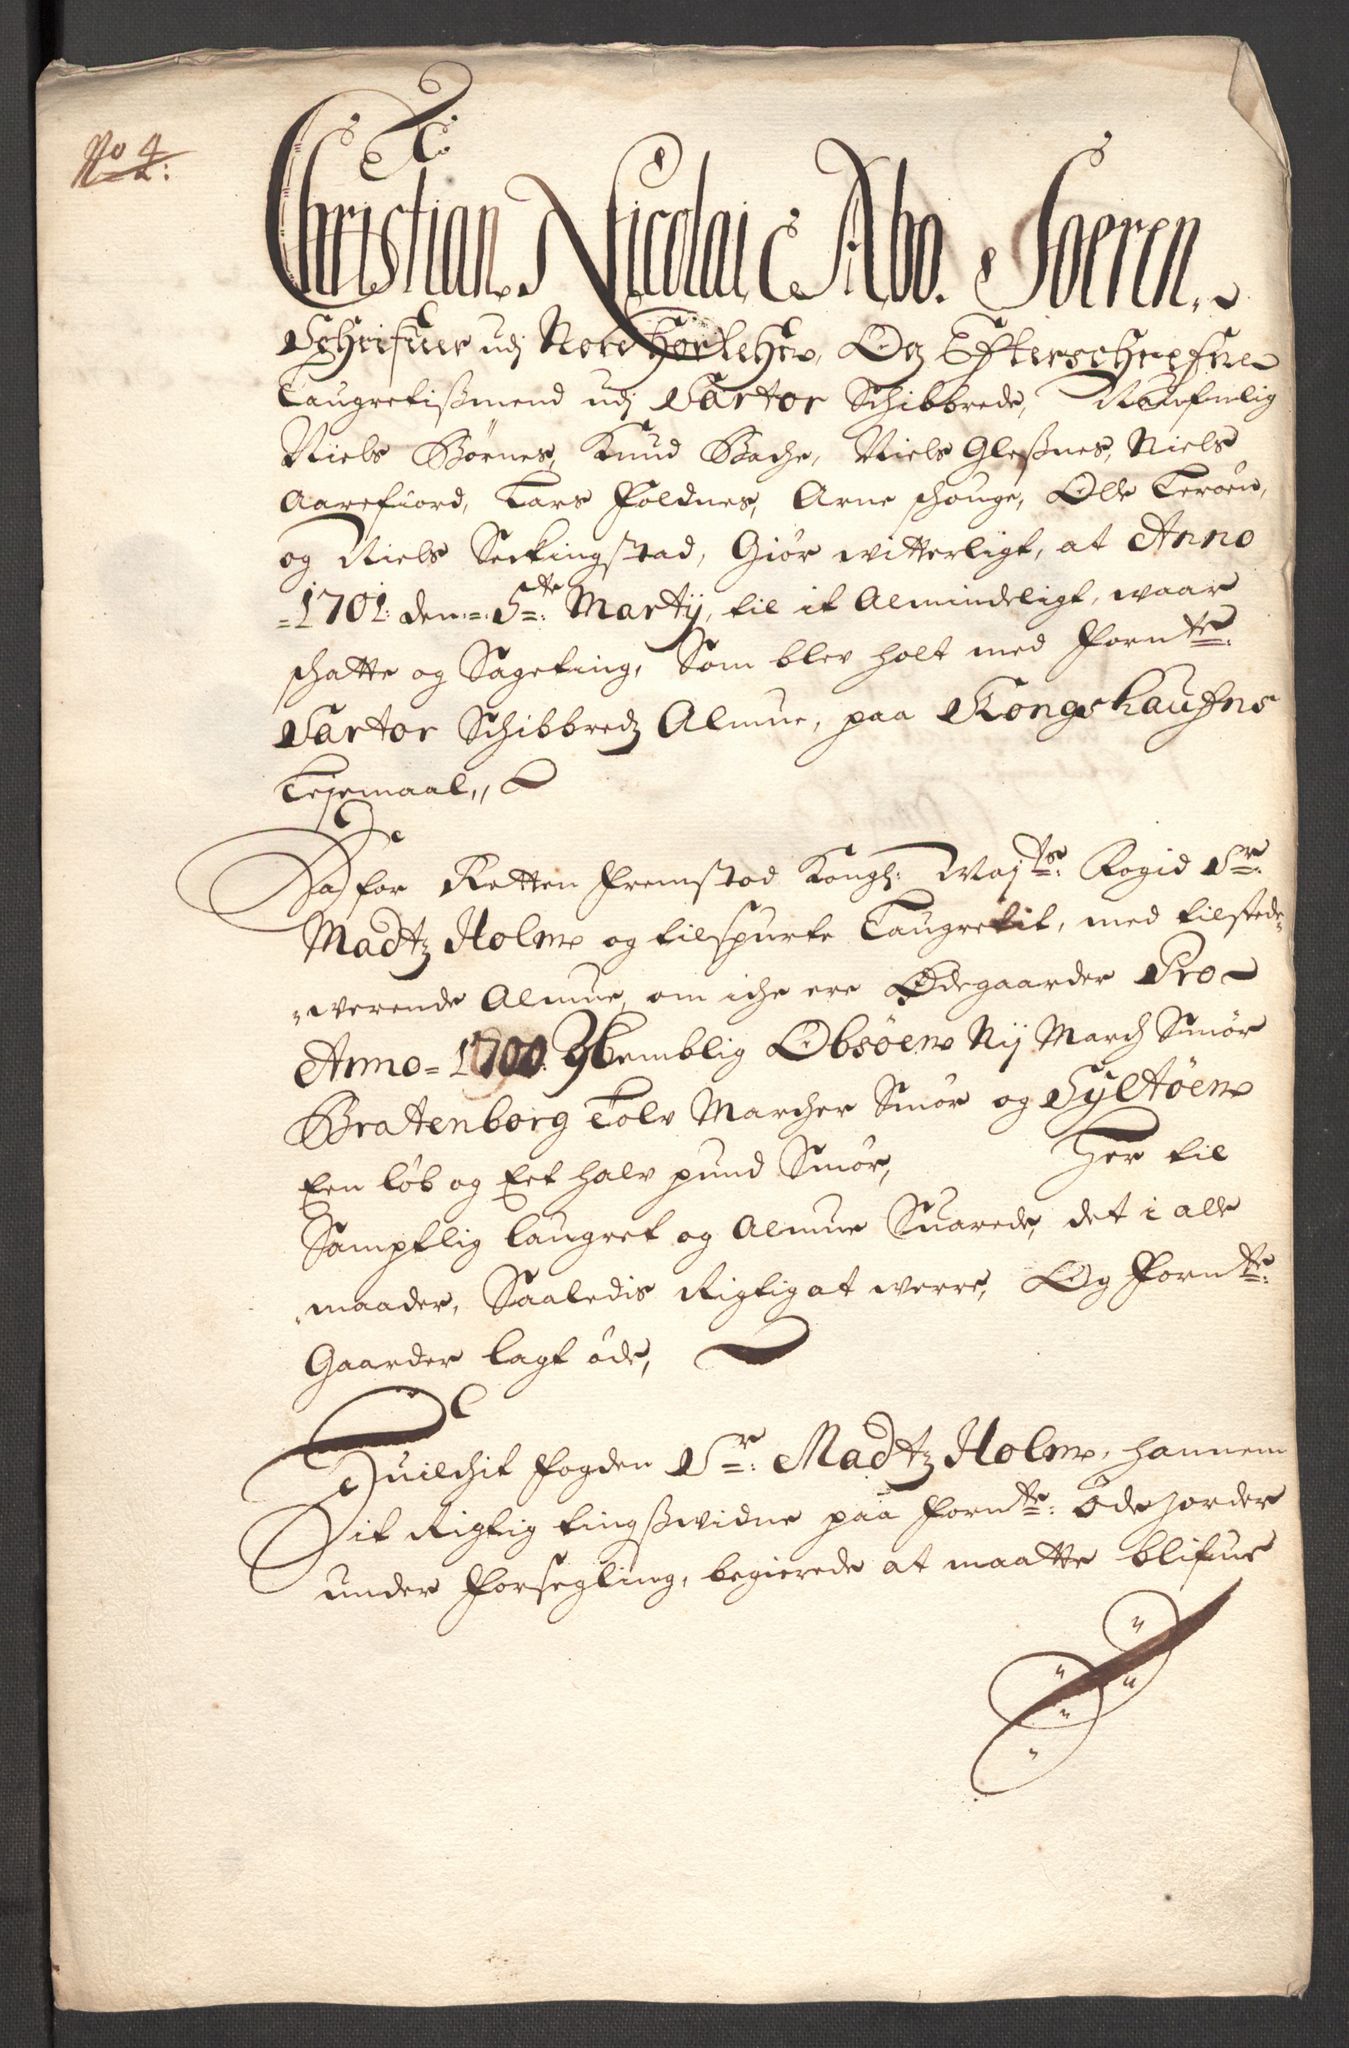 No 4
Christian Nicolai Abo. Soeren,
Schrifuer udj Nord Horlehn, Og Efterschrefne
Laugretißmend udj Vartor Schibbrede, Naufnlig
Niels Børnes, Knud Bache, Niels Gleßnes, Niels
Aarefiord, Lars Foldnes, Arne schouge, Olle Lerøen,
og Niels Seckingstad, Giør witterligt, at Anno
1701: den 5te Martij, til it Almindeligt, waar
schatte og Sageting, Som blev holt med Fornte:
Vartor Schibbredz Almue, paa Kongshaufns
Leiemaal,,
Da for Retten Fremstod Kongl: Majts: Fogid Sr:
Madtz Holm og tilspurte Laugretit, med tilstede
werende Almue, om iche ere Ødegaarder Pro
Anno 1700. Nemblig Obsøen Nij March Smør
Bratenborg Tolv Marcher Smør og Syltøen
Een løb og Eet halv pund Smør, Her til
Samptlig laugret og Almue Suarede, det i alle
maader, Saaledis Rigtig at werre, Og Fornte:
Gaarder lagt øde,
Huilchit Fogden Sr: Madtz Holm, hannem
Et Rigtig tingßwidne paa Fornte: Øde Jorder
under Forsegling, begierede at maatte blifue